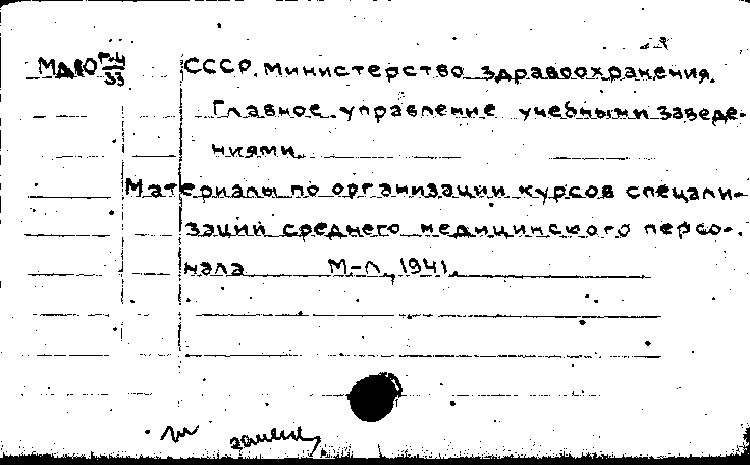 СССР. Министерство здравоохранения.
Главное управление учебными заведе-
ниями.
Материалы по организации курсов спецали-
зации среднего медицинского персо-
нала М-Л, 1941.